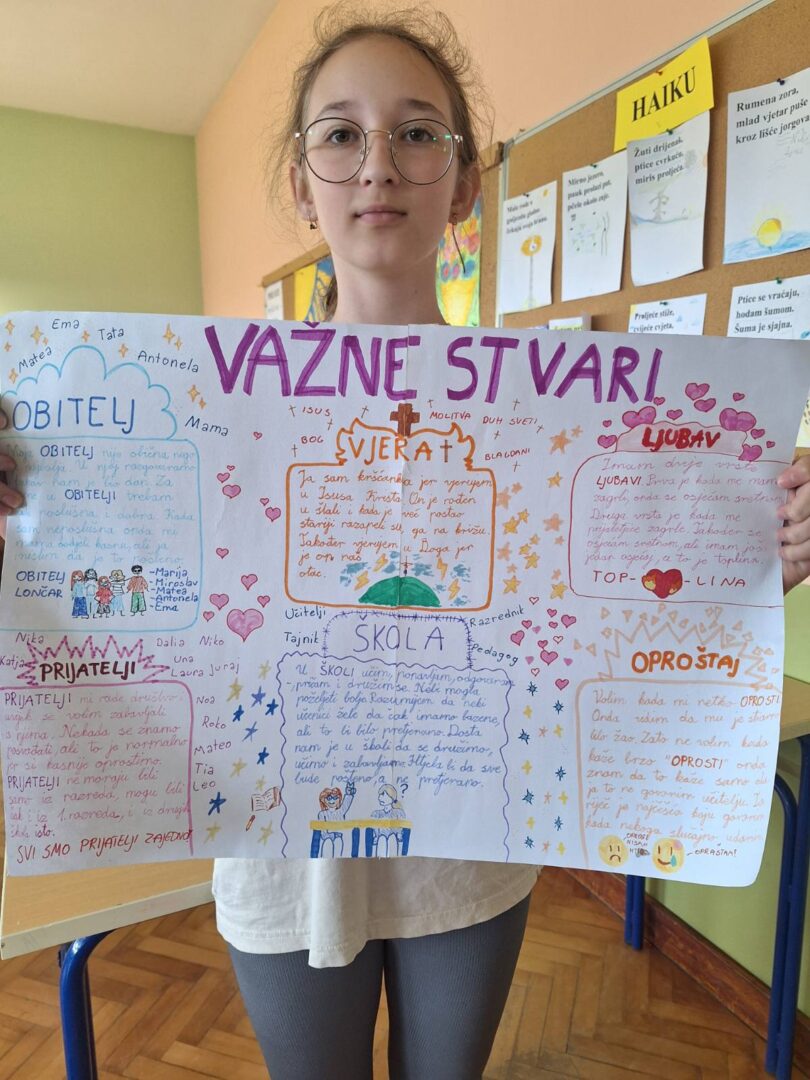 HAIKU
Rumena zora,
mlad vjetar puše
kroz lišće jorgova
Žuti drijenak,
ptice cvrkuću,
miris proljeća.
Mirno jezero,
pčele okolo zuje.
Proljeće stiže,
cvijeće cvjeta,
Ptice se vraćaju,
hodam šumom.
Šuma je sjajna.
VAŽNE STVARI
Ema
Tata
Matea
Antonela
Mama
OBITELJ
Moja OBITELJ nije obična, nego
najbolja. U njoj razgovaramo
OBITELJI trebam
poslušna i dobra. Kada
sam neposlušna onda mi
mama
mislim da je to pošteno.
OBITELJ
LONČAR
-Marija
-Miroslav
-Matea
-Antonela
-Ema
ISUS
BOG
MOLITVA
DUH SVETI
BLAGDANI
VJERA
Ja sam kršćanka jer vjerujem
u Isusa Krista. On je rođen
u štali i kada je već postao
stariji razapeli su ga na križu.
Također vjerujem u Boga jer
je on naš
otac.
LJUBAV
Imam dvije vrste
LJUBAVI. Prva je kada me mama
zagrli, onda se osjećam sretnom.
Druga vrsta je kada me
prijateljice zagrle. Također se
osjećam sretnom, ali imam još
jedan osjećaj, a to je toplina.
TOP-LINA
Nika
Katja
Dalia
Niko
Una
Laura
Juraj
Noa
Roko
Mateo
Tia
Leo
PRIJATELJI
PRIJATELJI mi rade društvo
uvijek se volim zabavljati
s njima. Nekada se znamo
posvađati, ali to je normalno
jer si kasnije oprostimo.
PRIJATELJI ne moraju biti
samo iz razreda, mogu biti
čak i iz 1. razreda, i iz druge
škole isto.
SVI SMO PRIJATELJI ZAJEDNO!
Učitelji
Tajnik
Razrednik
Pedagog
ŠKOLA
U ŠKOLI učim, ponavljam, odgovaram
, pričam i družim se. Nebi mogla
poželjeti bolje. Razumijem da neki
učenici žele da čak imamo bazene,
ali to bi bilo pretjerano. Dosta
nam je u školi da se družimo,
učimo i zabavljamo. Htjela bi da sve
bude pošteno, a ne pretjerano.
?
OPROŠTAJ
Volim kada mi netko OPROSTI.
Onda vidim da mu je stvarno
bilo žao. Zato ne volim kada
kaže brzo "OPROSTI" onda
znam da to kaže samo da
ja to ne govorim učitelju. Ta
riječ je najčešća koju govorim
kada nekoga slučajno udarim.
OPROSTI
NISAM
HTIO
-OPRAŠTAM!